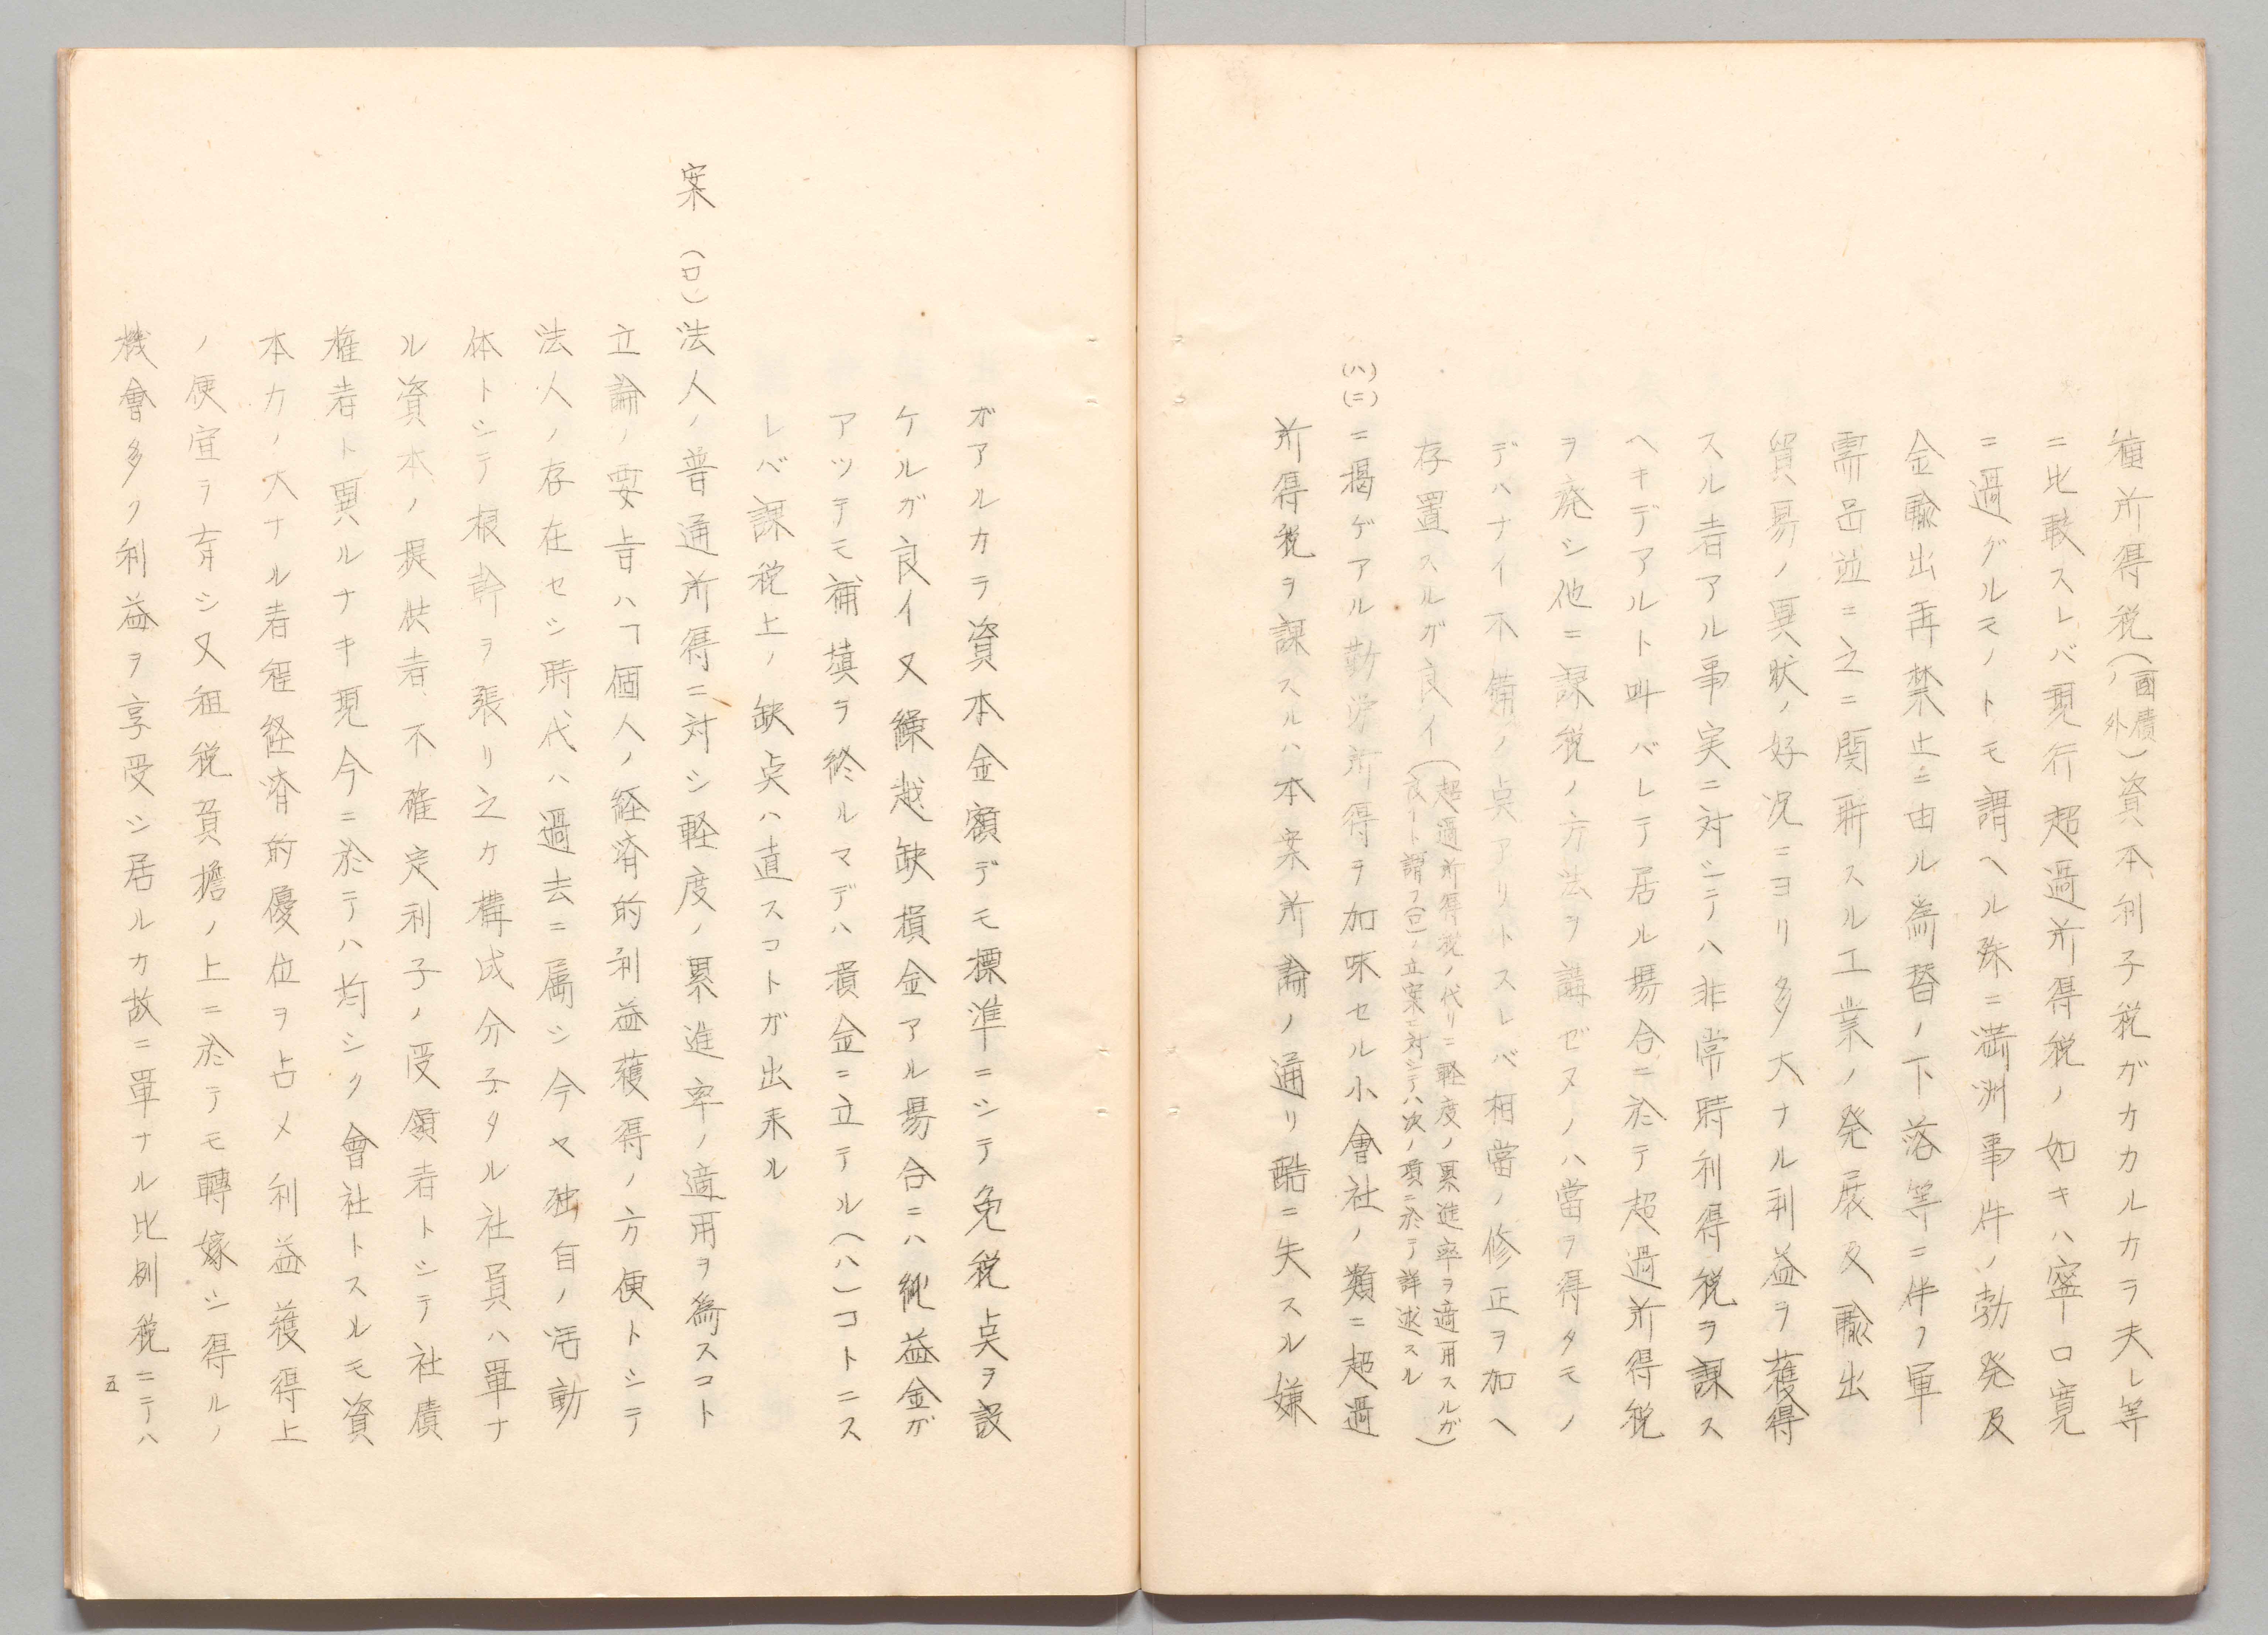 種所得税(国債ノ外)資本利子税ガカカルカラ夫レ等
ニ比較スレバ現行超過所得税ノ如キハ寧ロ寛
ニ過グルモノトモ謂ヘル殊ニ満洲事件ノ勃発及
金輸出再禁止ニ由ル為替ノ下落等ニ伴フ軍
需品並ニ之ニ関聯スル工業ノ発展及輸出
貿易ノ異状ノ好況ニヨリ多大ナル利益ヲ獲得
スル者アル事実ニ対シテハ非常時利得税ヲ課ス
ヘキデアルト叫バレテ居ル場合ニ於テ超過所得税
ヲ廃シ他ニ課税ノ方法ヲ講ゼヌノハ當ヲ得タモノ
デハナイ不備ノ点アリトスレバ相當ノ修正ヲ加ヘ
存置スルガ良イ(超過所得税ノ代リニ軽度ノ累進率ヲ適用スルガ
良イト謂フ(ロ)ノ立案ニ対シテハ次ノ項ニ於テ詳述スル)
(ハ)(ニ)ニ掲ゲアル勤労所得ヲ加味セル小會社ノ類ニ超過
所得税ヲ課スルハ本案所論ノ通リ酷ニ失スル嫌
ガアルカラ資本金額デモ標準ニシテ免税点ヲ設
ケルガ良イ又繰越欠損金アル場合ニハ純益金ガ
アツテモ補填ヲ終ルマデハ損金ニ立テル(ハ)コトニス
レバ課税上ノ缺点ハ直スコトガ出来ル
案(ロ)法人ノ普通所得ニ対シ軽度ノ累進率ノ適用ヲ為スコト
立論ノ要旨ハ「個人ノ経済的利益獲得ノ方便トシテ
法人ノ存在セシ時代ハ過去ニ属シ今ヤ独自ノ活動
体トシテ根幹ヲ張リ之カ構成分子タル社員ハ單ナ
ル資本ノ提供者、不確定利子ノ受領者トシテ社債
権者ト異ルナキ現今ニ於テハ均シク會社トスルモ資
本力ノ大ナル者程経済的優位ヲ占メ利益獲得上
ノ便宜ヲ有シ又租税負擔ノ上ニ於テモ轉嫁シ得ルノ
機會多ク利益ヲ享受シ居ルカ故ニ單ナル比例税ニテハ
五